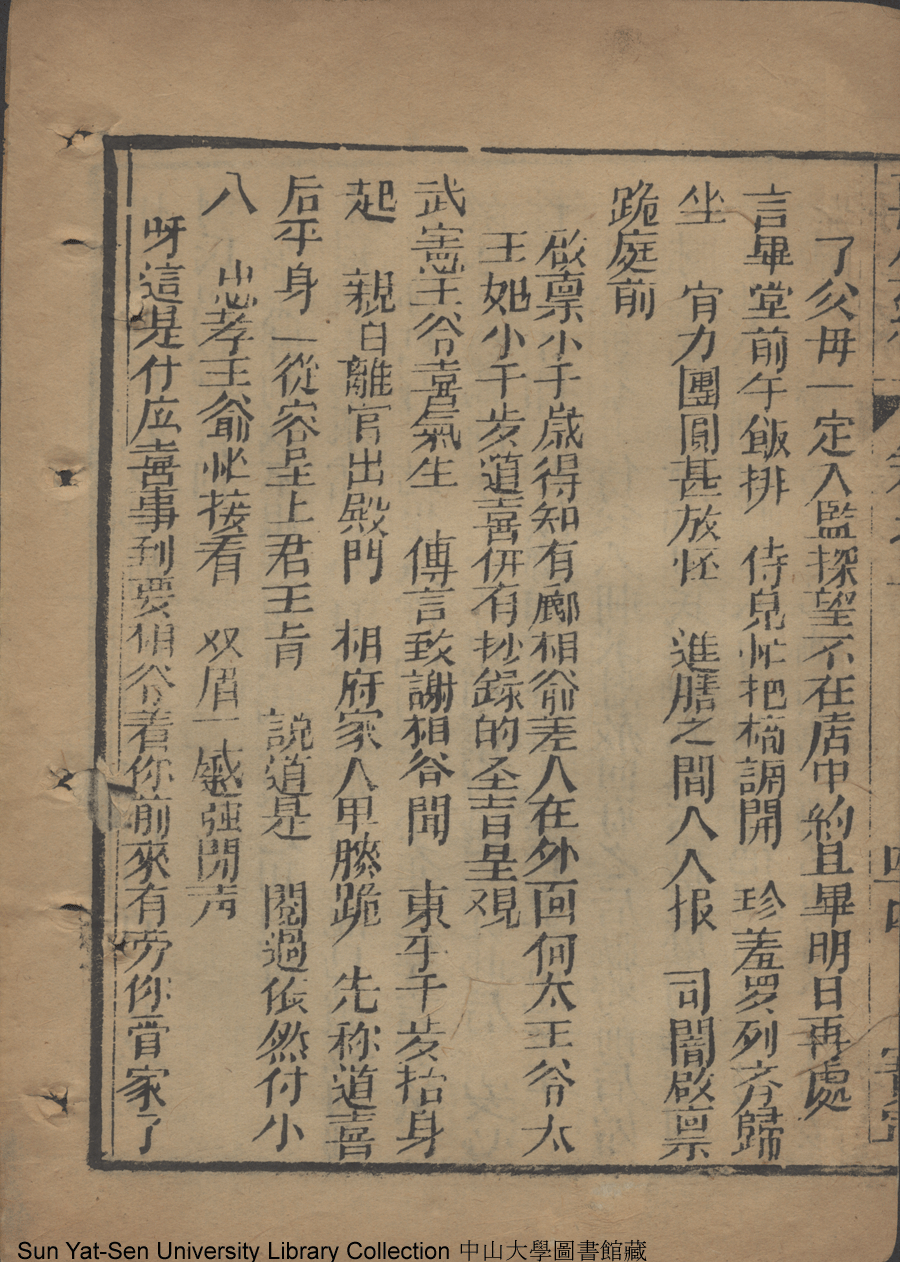 了父母一定入監探望不在店中約且畢明日再處
言畢堂前午飯排　侍兒忙把槅調開　珍羞罗列齐歸
坐　宥力團圓甚放怀　進膳之間人人报　司閽啟禀
跪庭前
啟禀小千歳得知有鄺相爺差人在外面何太王爷太
王妃小千歩道喜併有抄錄的圣旨呈观
武憲王爷喜氣生　傳言致謝相爷聞　東平千歩抬身
起　親自離官出殿門　相府家人甲賸跪　先称道喜
后平身　一從容呈上君王旨　說道是　閱過依然付小
八　忠孝王爺忙接看　双眉一蹙强開声
呀這是什広喜事到要相爷着你前來有劳你管家了
Sun Yat-Sen University Library Collection 中山大學圖書館藏